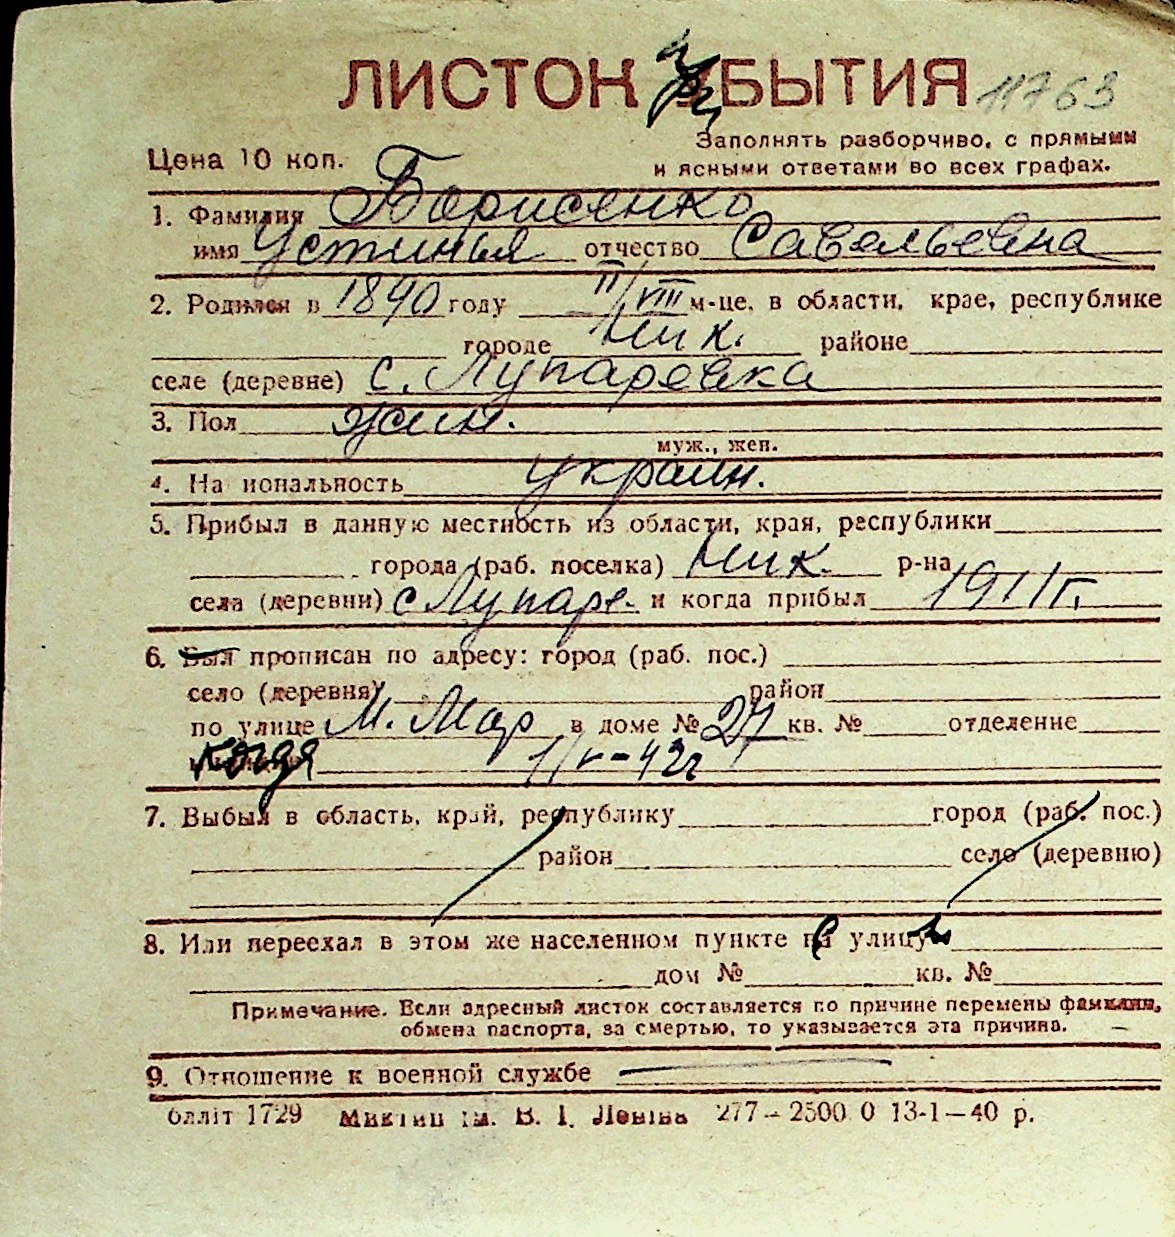 ЛИСТОК БЫТИЯ 11763
Цена 10 коп.
Заполнять разборчиво, с прямыми
и ясными ответами во всех графах.
1. Фамилия Борисенко
имя Устинья отчество Савельевна
2. Родился в 1890 году II/VIII м-це, в области, крае, республике
городе Ник. районе
селе (деревне) с. Лупаревка
3. Пол жен.
муж., жен.
4. На иональность украин.
5. Прибыл в данную местность из области, края, республики
города (раб. поселка) Ник. р-на
села (деревни) с Лупаре. и когда прибыл 1911 г.
6. Был прописан по адресу: город (раб. пос.)
село (деревня) район
по улице М. Мор в доме № 27 кв. № отделение
когда 1/V-42г
7. Выбыл в область, край, республику город (раб. пос.)
район село (деревню)
8. Или переехал в этом же населенном пункте улицу
дом № кв. №
Примечание. Если адресный листок составляется по причине перемены фамилии,
обмена паспорта, за смертью, то указывается эта причина.
9. Отношение к военной службе
блліт 1729 ім. В. І. Леніна 277–2500 0 13-1–40 р.